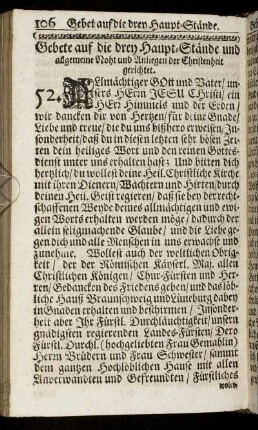 106 Gebet auf die drey Haupt-Stände.
Gebete auf die drey Haupt-Stände und
allgemeine Noht und Anliegen der Christenheit
gerichtet.
52. Allmächtiger GOtt und Vater/ un-
sers HErrn JESU Christi, ein
HErr Himmels und der Erden/
wir dancken dir von Hertzen/ für deine Gnade/
Liebe und treue/ die du uns bißhero erweisen/ In-
sonderheit/ daß du in diesen letzten betrübten Zei-
ten dein heiliges Wort und den reinen Gottes-
dienst unter uns erhalten hast: Und bitten dich
hertzlich/ du wollest deine Heil. Christliche Kirche
mit ihren Dienern/ Wächtern und Hirten/ durch
deinen Heil. Geist regieren/ daß sie bey der recht-
schaffenen Weyde deines allmächtigen und ewi-
gen Worts erhalten werden möge/ dadurch der
allein seligmachende Glaube/ und die Liebe ge-
gen dich und alle Menschen in uns erwachse und
zunehme. Wollest auch der weltlichen Obrig-
keit/ der Römischen Käyserl. Maj. allen
Christlichen Königen/ Chur-Fürsten und Her-
ren/ Gedancken des Friedens geben/ und das löb-
liche Hauß Braunschweig und Lüneburg dabey
in Gnaden erhalten und beschirmen/ Insonder-
heit aber Ihr Fürstl. Durchläuchtigkeit/ unsern
gnädigsten regierenden Landes-Fürsten/ Dero
Fürstl. Durchl. (hochgeliebten Frau Gemahlin)
Herrn Brüdern und Frau Schwester/ sammt
dem gantzen Hochlöblichen Hause mit allen
Anverwandten und Gefreundten/ Fürstliches